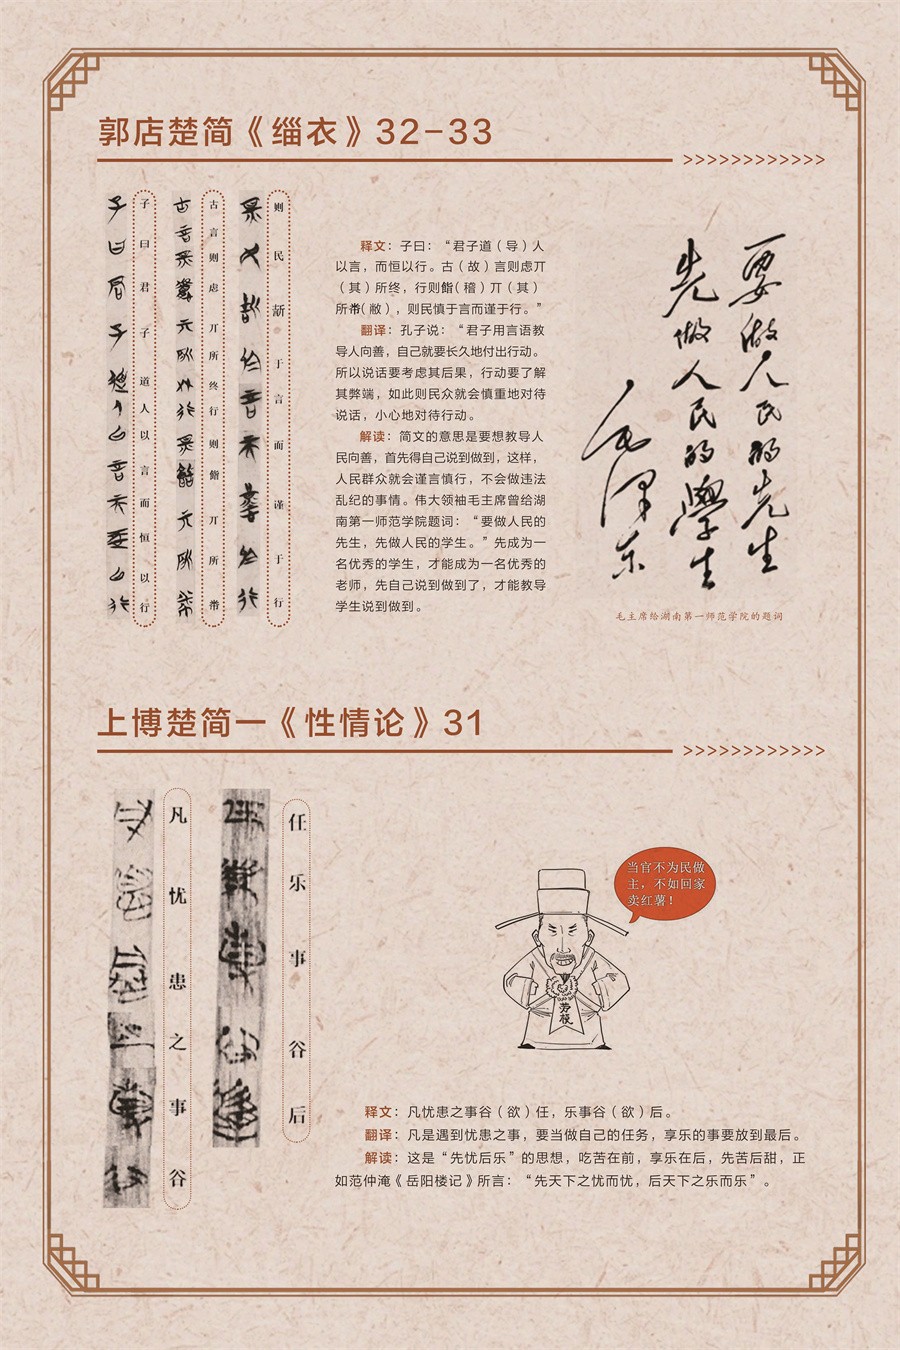 郭店楚简《缁衣》32-33
>>>>>>>>>>>>
子曰君子道人以言而恒以行
古言则虑丌所终行则㿝丌所㡀
则民訢于言而谨于行
释文：子曰：“君子道（导）人
以言，而恒以行。古（故）言则虑丌
（其）所终，行则（稽）丌（其）
所（敝），则民慎于言而谨于行。”
翻译：孔子说：“君子用言语教
导人向善，自己就要长久地付出行动。
所以说话要考虑其后果，行动要了解
其弊端，如此则民众就会慎重地对待
说话，小心地对待行动。
解读：简文的意思是要想教导人
民向善，首先得自己说到做到，这样，
人民群众就会谨言慎行，不会做违法
乱纪的事情。伟大领袖毛主席曾给湖
南第一师范学院题词：“要做人民的
先生，先做人民的学生。”先成为一
名优秀的学生，才能成为一名优秀的
老师，先自己说到做到了，才能教导
学生说到做到。
要做人民的先生
先做人民的學生
毛泽东
毛主席给湖南第一师范学院的题词
上博楚简一《性情论》31
>>>>>>>>>>>>
凡忧患之事谷
任乐事谷后
当官不为民做
主，不如回家
卖红薯！
劳模
释文：凡忧患之事谷（欲）任，乐事谷（欲）后。
翻译：凡是遇到忧患之事，要当做自己的任务，享乐的事要放到最后。
解读：这是“先忧后乐”的思想，吃苦在前，享乐在后，先苦后甜，正
如范仲淹《岳阳楼记》所言：“先天下之忧而忧，后天下之乐而乐”。